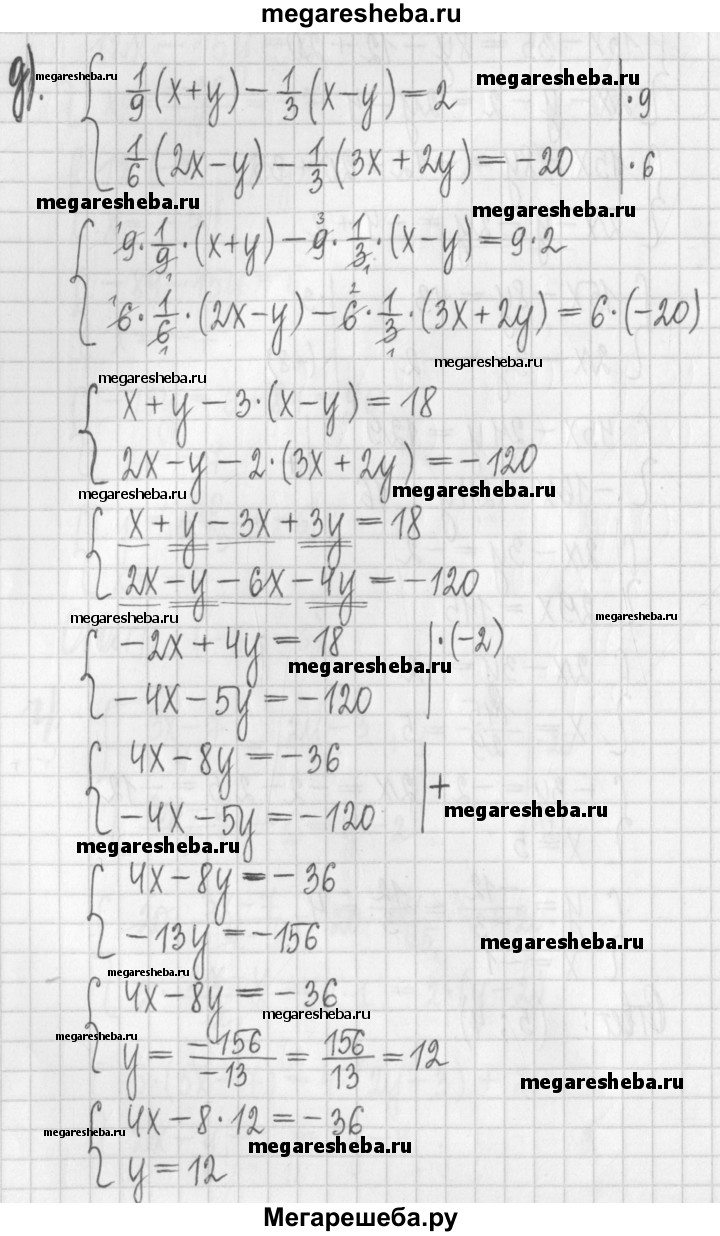 megaresheba.ru
д). megaresheba.ru { 1/9 (x+y) − 1/3 (x−y) = 2 | ·9 megaresheba.ru
1/6 (2x−y) − 1/3 (3x+2y) = −20 | ·6
megaresheba.ru megaresheba.ru
{ ¹9 · 1/9₁ · (x+y) − ³9 · 1/3₁ · (x−y) = 9·2
¹6 · 1/6₁ · (2x−y) − ²6 · 1/3₁ · (3x+2y) = 6·(−20)
megaresheba.ru megaresheba.ru
{ x+y − 3·(x−y) = 18
2x−y − 2·(3x+2y) = −120
megaresheba.ru megaresheba.ru
{ x + y − 3x + 3y = 18
2x − y − 6x − 4y = −120
megaresheba.ru megaresheba.ru
{ −2x + 4y = 18 | ·(−2)
megaresheba.ru
−4x − 5y = −120
{ 4x − 8y = −36 | +
−4x − 5y = −120 megaresheba.ru
megaresheba.ru
{ 4x − 8y = −36
−13y = −156 megaresheba.ru
megaresheba.ru
{ 4x − 8y = −36
megaresheba.ru megaresheba.ru
y = −156/−13 = 156/13 = 12
megaresheba.ru
{ 4x − 8·12 = −36
megaresheba.ru megaresheba.ru
y = 12
Мегарешеба.ру